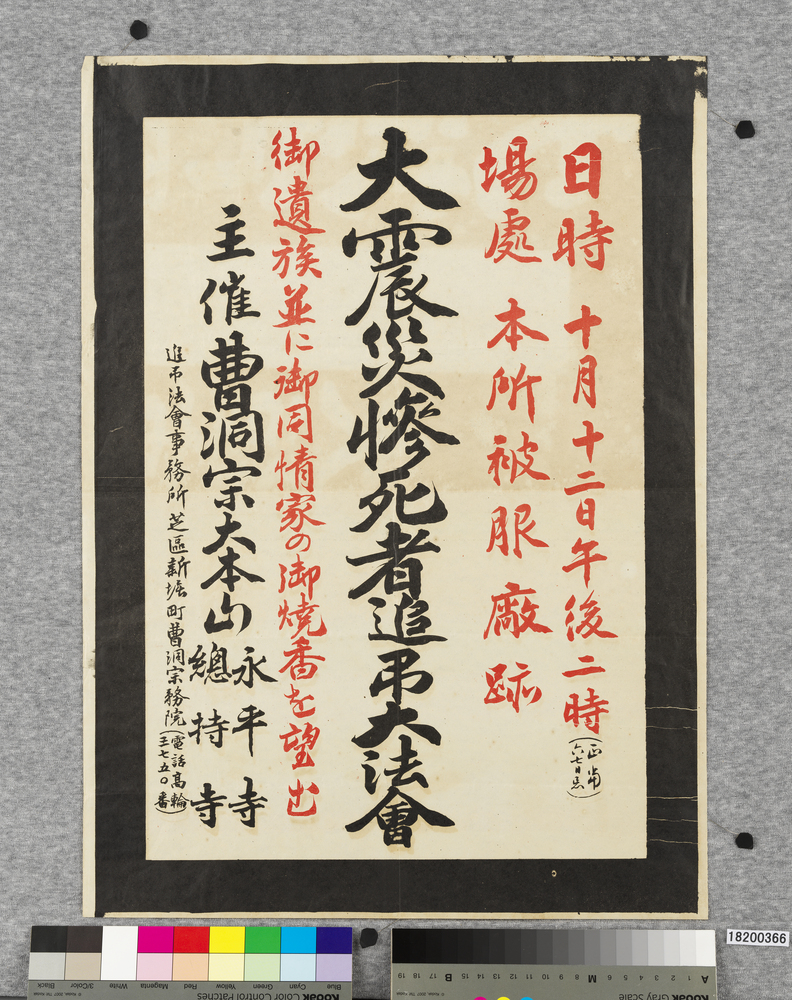 日時 十月十二日午後二時
(正當六七日忌)
場處 本所被服廠跡
大震災慘死者追弔大法會
御遺族並に御同情家の御燒香を望む
主催 曹洞宗大本山 永平寺
總持寺
追弔法會事務所 芝區新堀町曹洞宗務院(電話高輪三七五〇番)
18200366
Black
3/Color
White
Magenta
Red
Yellow
Green
Cyan
Blue
Kodak Color Control Patches
Kodak Gray Scale
A 1 2 3 4 5 6 M 8 9 10 11 12 13 14 15 B 17 18 19